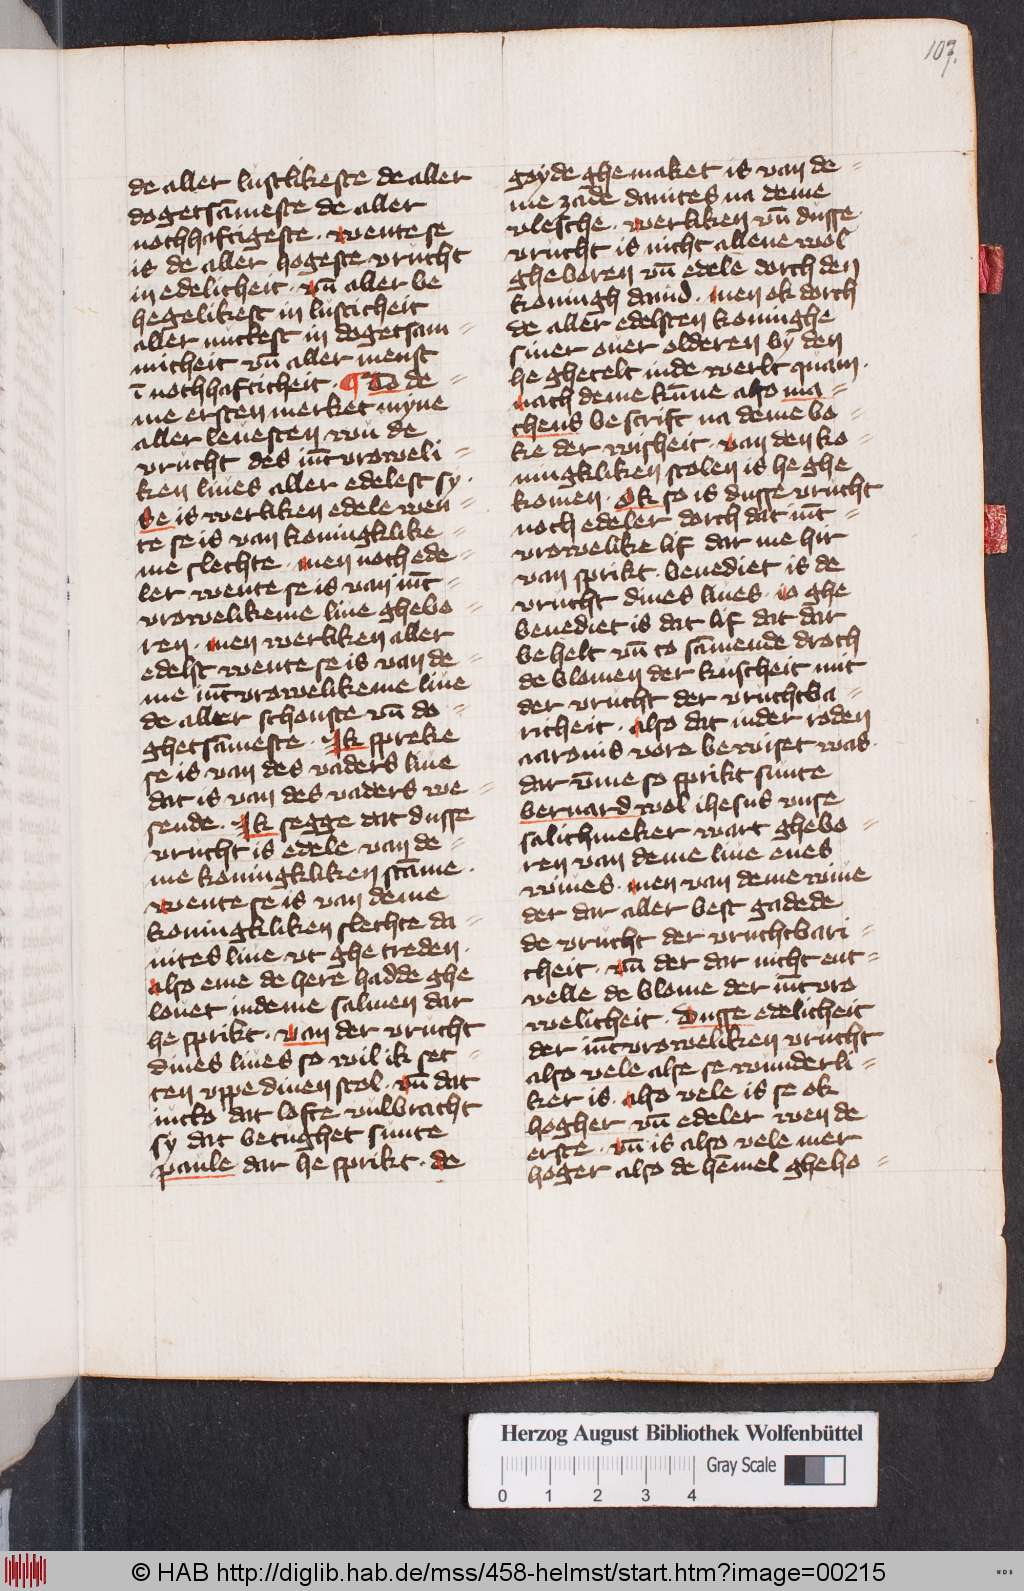 107.
de aller lustlikeste de aller
dogetsāmeste de aller
nochhaftigeste. wente se
is de aller hogeste vrucht
in edelicheit. vn̄ aller be
hegelikest in lusticheit
aller nuttest in dogetsam=
micheit vn̄ aller menst
ī nochhafticheit. ¶ To de=
me ersten merket myne
aller leuesten wu de
vrucht des iūcvroweli=
ken liues aller edelest sy.
Se is werliken edele wen=
te se is van koningklike=
me slechte. men noch ede=
ler wente se is van iūc=
vrowelikeme liue ghebo=
ren. men werliken aller
edelst wente se is van de=
me iūcvrowelikeme liue
de aller schonste vn̄ do=
ghetsāmeste. Jk spreke
se is van des vaders liue
dat is van des vaders we=
sende. Jk segge dat dusse
vrucht is edele van de=
me koningkliken stāme.
wente se is van deme
koningkliken slechte da=
uites liue vt ghe treden.
also eme de here hadde ghe
louet in deme salmen dar
he sprikt. van der vrucht
dines liues so wil ik set=
ten vppe dinen stol. vn̄ dat
iucto dat lofte vulbracht
sy dat betughet sunte
paule dar he sprikt. de
goyde ghemaket is van de=
me zāde dauites na deme
vlesche. werliken vn̄ dusse
vrucht is nicht allene wol
gheboren vn̄ edele dorch den
koningh dauid. men ok dorch
de aller edelsten koninghe
siner ouer olderen by den
he ghetelt in de werlt quam.
nach deme kūne also ma=
theus bescrift na deme bo=
ke der wisheit. van den ko=
ningkliken stolen is he ghe
komen. Ok so is dusse vrucht
noch edeler dorch dat iūc=
vrowelike lif dar me hir
van sprikt. benediet is de
vrucht dines liues. io ghe
benediet is dat lif dat dar
behelt vn̄ to sāmende droch
de blomen der kuscheit mit
der vrucht der vruchtba=
richeit. also dat in der roden
aaronis vore bewiset was.
dar vm̄e so sprikt sunte
bernard wol ihesus vnse
salichmeker wart ghebo=
ren van deme liue enes
wiues. men van deme wiue
der dar aller best gadede
de vrucht der vruchtbari=
cheit. vn̄ der dar nicht ent=
velle de blome der iūcvro
welicheit. Dusse edelicheit
der iūcvroweliken vrucht
also vele alse se wunderli=
ker is. also vele is se ok
hogher vn̄ edeler wen de
erste. vn̄ is also vele mer
hoger also de hēmel gheho=
Herzog August Bibliothek Wolfenbüttel
Gray Scale
0 1 2 3 4
© HAB http://diglib.hab.de/mss/458-helmst/start.htm?image=00215